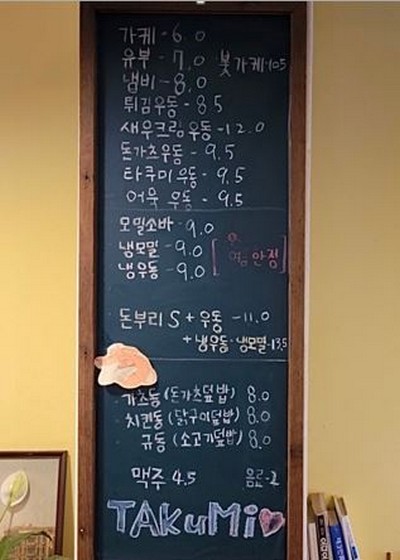 가케 - 6.0
유부 - 7.0 붓가케 10.5
냄비 - 8.0
튀김우동 - 8.5
새우크림우동 - 12.0
돈가츠우동 - 9.5
타쿠미우동 - 9.5
어묵우동 - 9.5
모밀소바 - 9.0
냉모밀 - 9.0
냉우동 - 9.0
한정]
돈부리 S + 우동 - 11.0
+ 냉우동·냉모밀 - 13.5
가츠동 (돈가츠덮밥) 8.0
치킨동 (닭구이덮밥) 8.0
규동 (소고기덮밥) 8.0
맥주 4.5 음료-2
TAKuMi